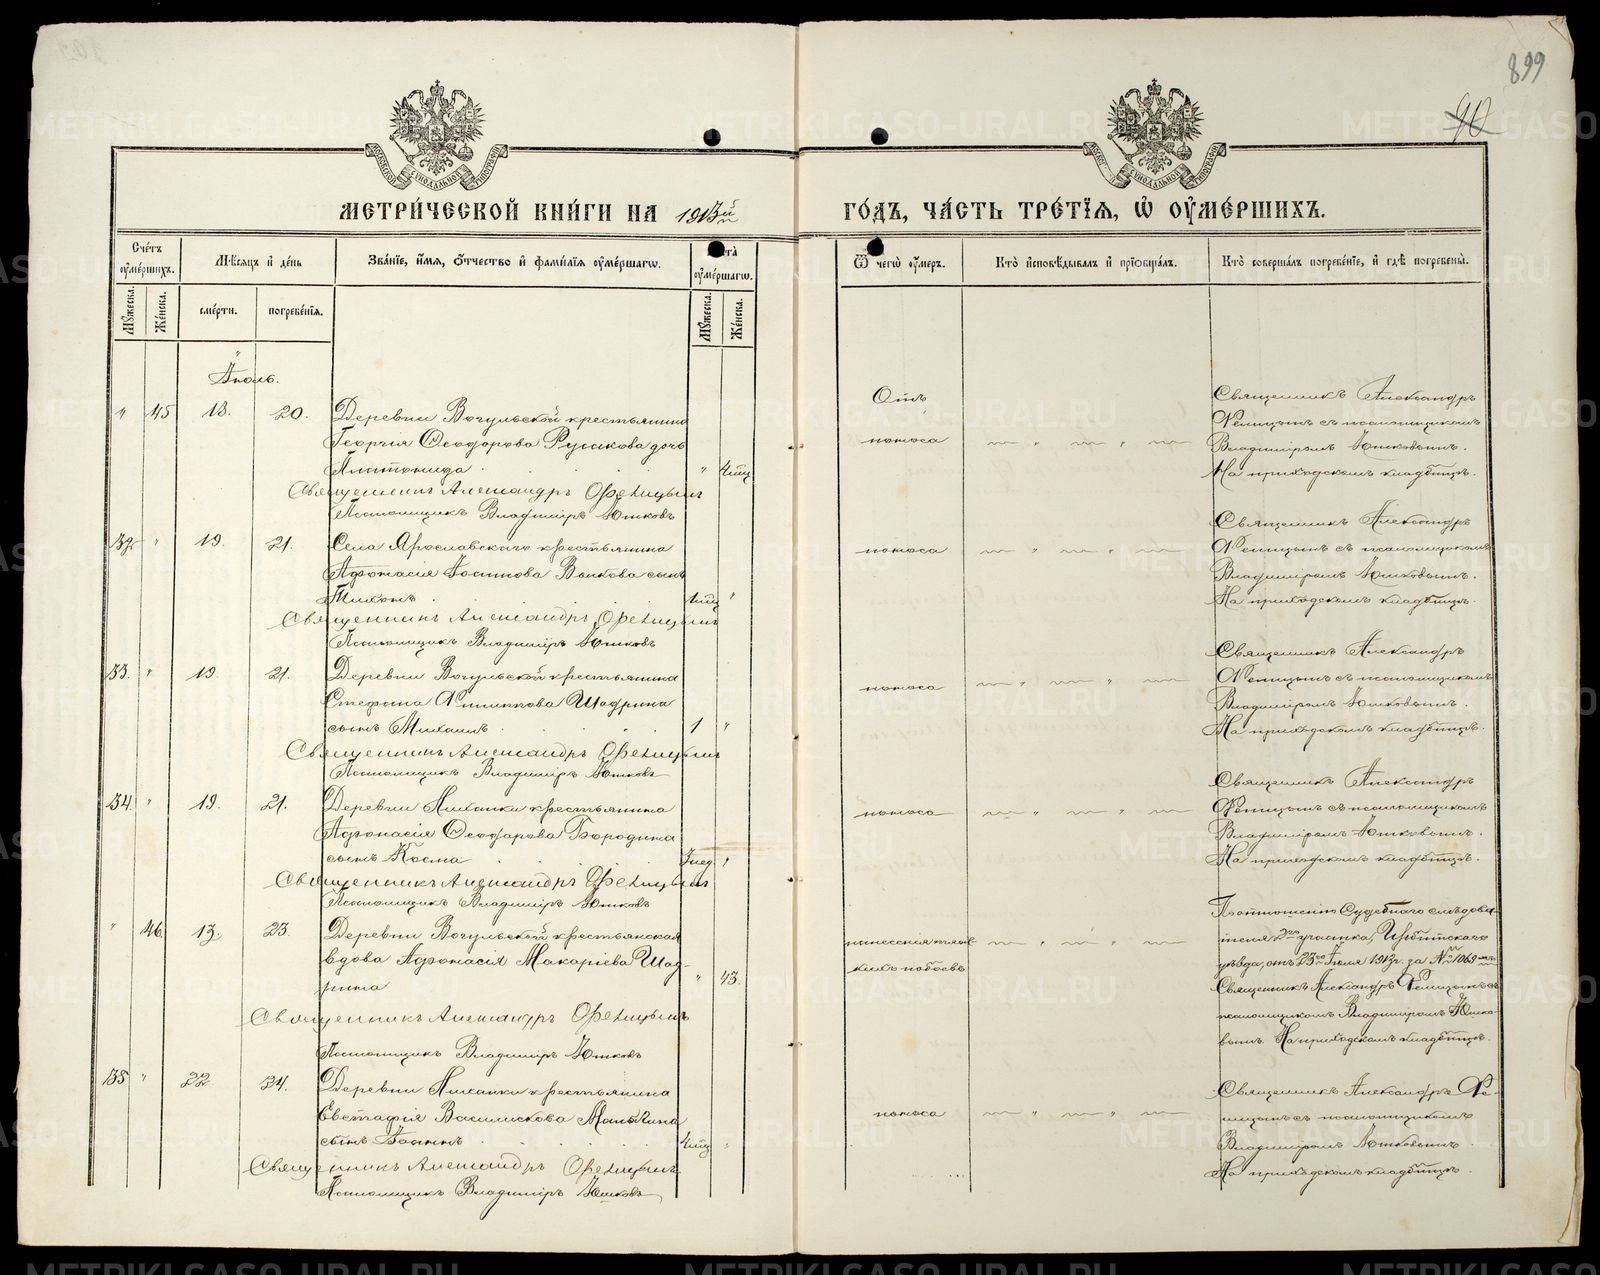 899
90
МЕТРИ́ЧЕСКОЙ КНИ́ГИ НА 1913й
ГО́ДЪ, ЧА́СТЬ ТРЕ́ТІѦ, Ѡ҆ ОУ҆МЕ́РШИХЪ.
Сче́тъ оу҆ме́ршихъ.
Мѣ́сѧцъ и҆ де́нь
Зва́нїе, и҆́мѧ, ѻ҆́тчество и҆ фами́лїѧ оу҆ме́ршагѡ.
оу҆ме́ршагѡ.
Ѿ чегѡ̀ оу҆́меръ.
Кто̀ и҆сповѣ́дывалъ и҆ прїѡбща́лъ.
Кто̀ соверша́лъ погребе́нїе, и҆ гдѣ̀ погребены̀.
Мꙋ́жеска.
Же́нска.
сме́рти.
погребе́нїѧ.
Мꙋ́жеска.
Же́нска.
Іюль.
" 45 18. 20. Деревни Вогульской крестьянина
Георгія Ѳеодорова Русакова дочь
" 4мц
Священникъ Александръ Ѳелицынъ
Псаломщикъ Владиміръ Юшковъ
Отъ
поноса
Священникъ Александръ
Фелицынъ съ псаломщикомъ
Владиміромъ Юшковымъ.
На приходскомъ кладбищѣ.
32 " 19. 21. Села Ярославскаго крестьянина
Аѳонасія Волкова сынъ
"
Священникъ Александръ Ѳелицынъ
Псаломщикъ Владиміръ Юшковъ
поноса
Священникъ Александръ
Фелицынъ съ псаломщикомъ
Владиміромъ Юшковымъ.
На приходскомъ кладбищѣ.
33. " 19. 21. Деревни Вогульской крестьянина
Стефана Филиппова Шадрина
сынъ Михаилъ 1 "
Священникъ Александръ Ѳелицынъ
Псаломщикъ Владиміръ Юшковъ
поноса
Священникъ Александръ
Фелицынъ съ псаломщикомъ
Владиміромъ Юшковымъ.
На приходскомъ кладбищѣ.
34. " 19. 21. Деревни крестьянина
Аѳонасія Ѳеодорова Бородина
сынъ Косма 3нед "
Священникъ Александръ Ѳелицынъ
Псаломщикъ Владиміръ Юшковъ
поноса
Священникъ Александръ
Фелицынъ съ псаломщикомъ
Владиміромъ Юшковымъ.
На приходскомъ кладбищѣ.
" 46. 13. 23. Деревни Вогульской крестьянская
вдова Аѳонасія Макаріева Шад-
рина " 43.
Священникъ Александръ Ѳелицынъ
Псаломщикъ Владиміръ Юшковъ
нанесенія тяж-
кихъ побоевъ
По отношенію Судебнаго слѣдова-
теля 2го участка, Ирбитскаго
уѣзда, отъ 23го Іюля 1913г. за № 1069
Священникъ Александръ Фелицынъ съ
псаломщикомъ Владиміромъ Юшко-
вымъ. На приходскомъ кладбищѣ.
35 " 22 24. Деревни крестьянина
Евстафія
сынъ Іоаннъ 4мц "
Священникъ Александръ Ѳелицынъ
Псаломщикъ Владиміръ Юшковъ
поноса
Священникъ Александръ Фе-
лицынъ съ псаломщикомъ
Владиміромъ Юшковымъ.
На приходскомъ кладбищѣ.
METRIKI.GASO-URAL.RU